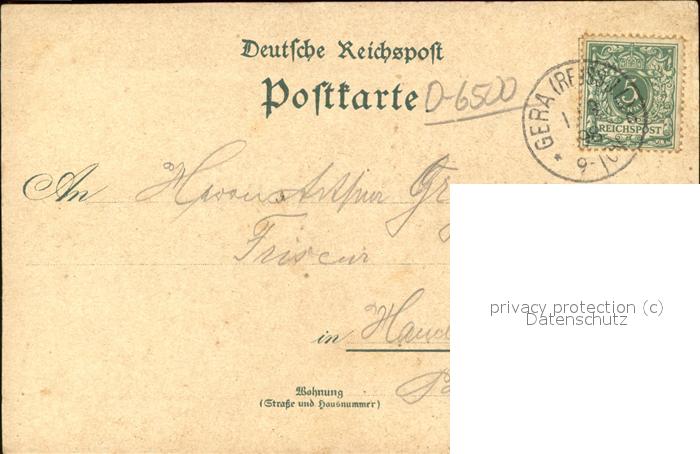 Deutsche Reichspost
Postkarte D-6500
GERA (REUSS)
9-10
5
REICHSPOST
An Herrn Arthur
Friseur
in
Wohnung
(Straße und Hausnummer)
privacy protection (c)
Datenschutz